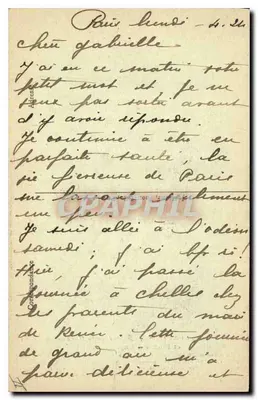 Paris lundi - 4.24
chère gabrielle.
J'ai eu ce matin votre
petit mot et je ne
veux pas sortir avant
d'y avoir répondu.
Je continue à être en
parfaite santé, la
vie fiévreuse de Paris
me seulement
un peu.
Je suis allée à l'odéon
samedi; j'ai bp ri!
Hier, j'ai passé la
journée à chelles chez
les parents du mari
de Renée. Cette journée
de grand air m'a
paru délicieuse et
CPAPHIL
Correspondance